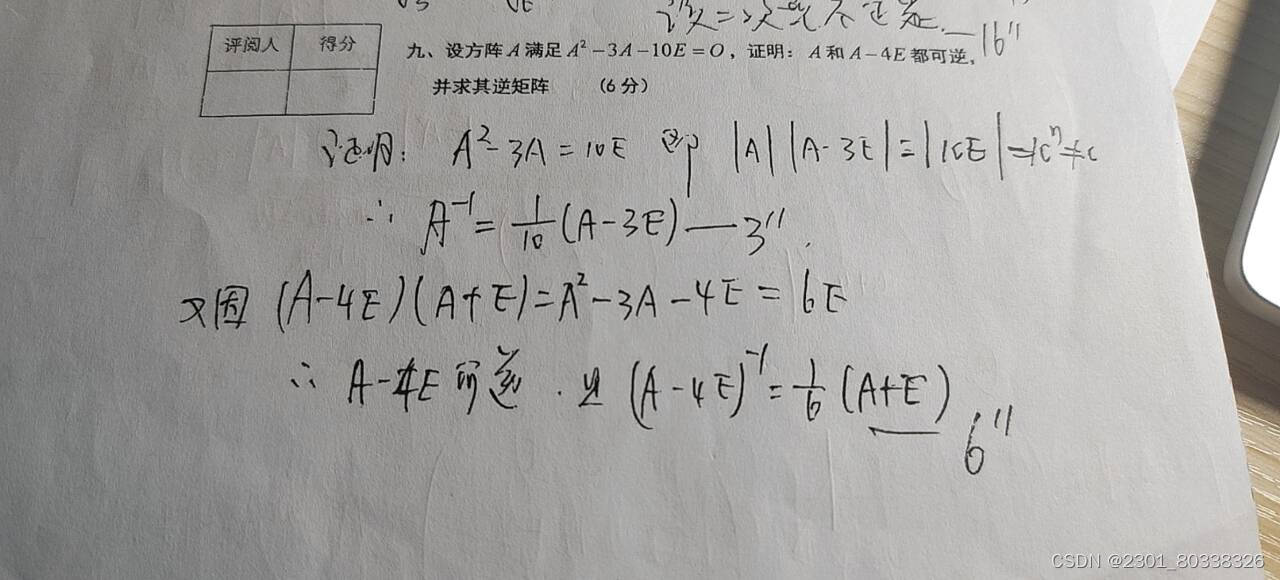 评阅人 得分
九、设方阵A满足A²-3A-10E=O，证明：A和A-4E都可逆，
—16"
并求其逆矩阵 （6分）
证明： A²-3A=10E 即 |A||A-3E|=|10E|=10ⁿ≠0
∴ A⁻¹=1/10(A-3E)—3"
又因 (A-4E)(A+E)=A²-3A-4E=6E
∴ A-4E可逆．且 (A-4E)⁻¹=1/6(A+E)
— 6"
CSDN @2301_80338326